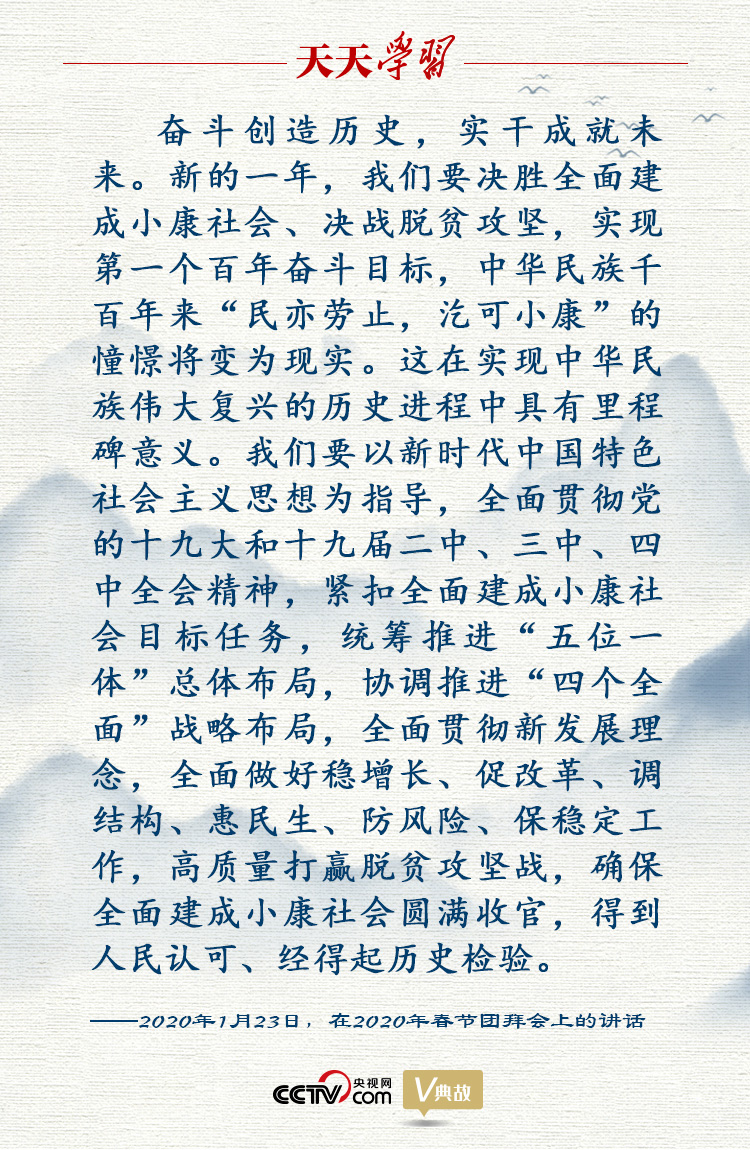 天天學習
奋斗创造历史，实干成就未
来。新的一年，我们要决胜全面建
成小康社会、决战脱贫攻坚，实现
第一个百年奋斗目标，中华民族千
百年来“民亦劳止，汔可小康”的
憧憬将变为现实。这在实现中华民
族伟大复兴的历史进程中具有里程
碑意义。我们要以新时代中国特色
社会主义思想为指导，全面贯彻党
的十九大和十九届二中、三中、四
中全会精神，紧扣全面建成小康社
会目标任务，统筹推进“五位一
体”总体布局，协调推进“四个全
面”战略布局，全面贯彻新发展理
念，全面做好稳增长、促改革、调
结构、惠民生、防风险、保稳定工
作，高质量打赢脱贫攻坚战，确保
全面建成小康社会圆满收官，得到
人民认可、经得起历史检验。
——2020年1月23日，在2020年春节团拜会上的讲话
CCTV.com 央视网
V典故